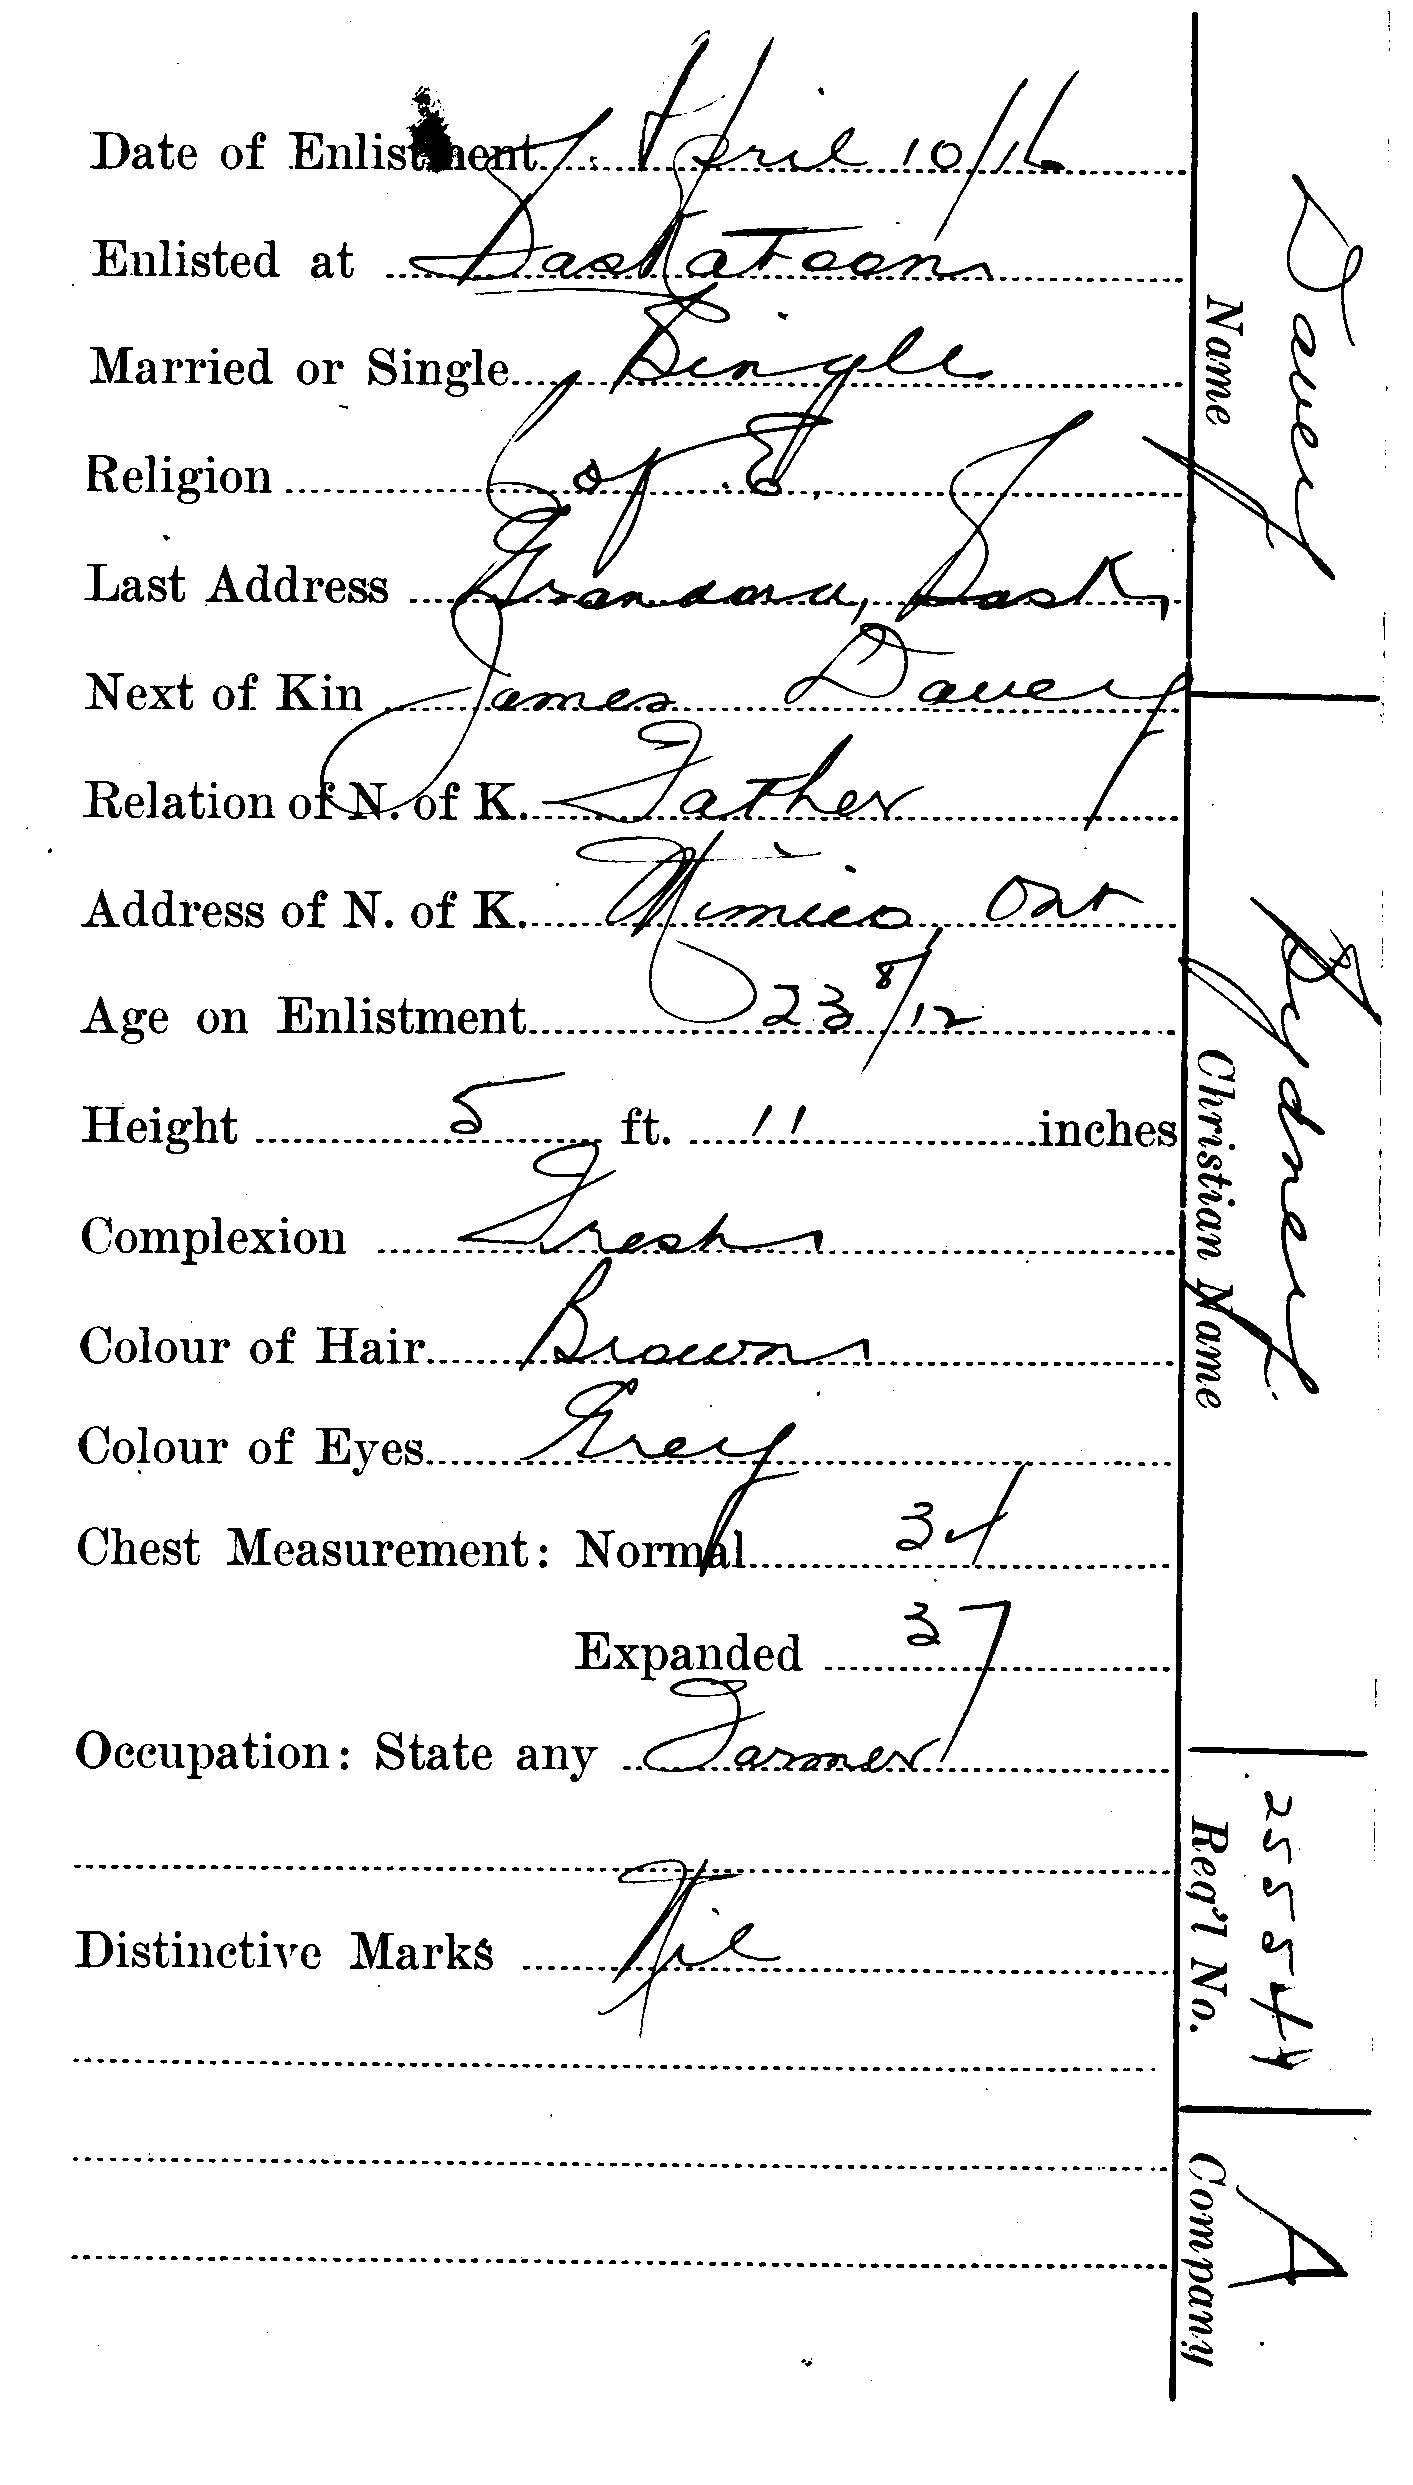 Date of Enlistment April 10/16
Enlisted at Saskatoon
Married or Single Single
Religion C of E.
Last Address Grandora, Sask,
Next of Kin James Davey
Relation of N. of K. Father
Address of N. of K. Mimico Ont
Age on Enlistment 23 8/12
Height 5 ft. 11 inches
Complexion Fresh
Colour of Hair Brown
Colour of Eyes Grey
Chest Measurement: Normal 34
Expanded 37
Occupation: State any Farmer
Distinctive Marks Nil
Name Davey
Christian Name Sydney
Reg'l No. 255544
Company A